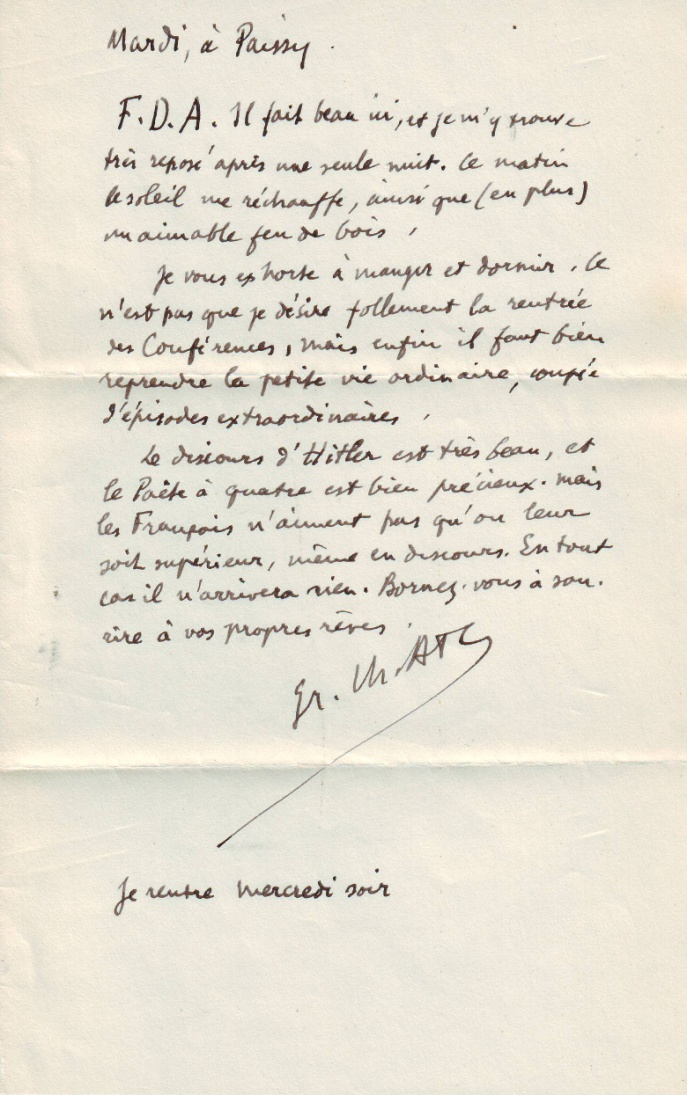 Mardi, à Paissy.
F.D.A. Il fait beau ici, et je m'y trouve
très reposé après une seule nuit. Ce matin
le soleil me réchauffe, ainsi que (en plus)
un aimable feu de bois.
Je vous exhorte à manger et dormir. Ce
n'est pas que je désire follement la rentrée
des Conférences, mais enfin il faut bien
reprendre la petite vie ordinaire, coupée
d'épisodes extraordinaires.
Le discours d'Hitler est très beau, et
le Pacte à quatre est bien précieux. Mais
les Français n'aiment pas qu'on leur
soit supérieur, même en discours. En tout
cas il n'arrivera rien. Bornez-vous à sou-
rire à vos propres rêves.
Je rentre Mercredi soir